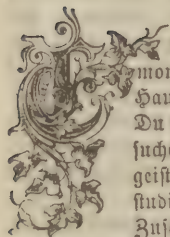 mon
Hau
Du
such
geist
studi
Zus